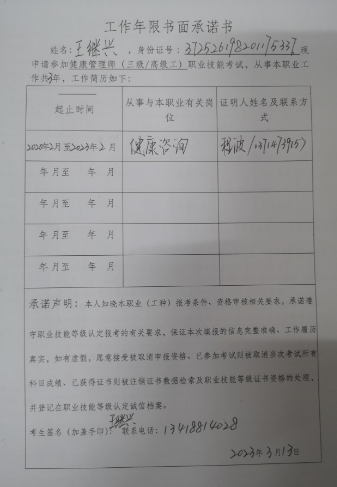 工作年限书面承诺书
姓名：王继兴，身份证号：372526198201175337现
申请参加健康管理师（三级/高级工）职业技能考试，从事本职业工
作共3年，工作简历如下：
起止时间 从事与本职业有关岗位 证明人姓名及联系方式
2020年2月至2023年2月 健康咨询
年 月至 年 月
年 月至 年 月
年 月至 年 月
年 月至 年 月
承诺声明：本人知晓本职业（工种）报考条件、资格审核相关要求，承诺遵
守职业技能等级认定报考的有关要求，保证本次填报的信息完整准确、工作履历
真实，如有虚假，愿意接受被取消申报资格、已参加考试则被取消当次考试所有
科目成绩、已获得证书则被注销证书数据检索及职业技能等级证书资格的处理，
并登记在职业技能等级认定诚信档案。
考生签名（加盖手印）：王继兴 联系电话：13418814028
2023年3月13日